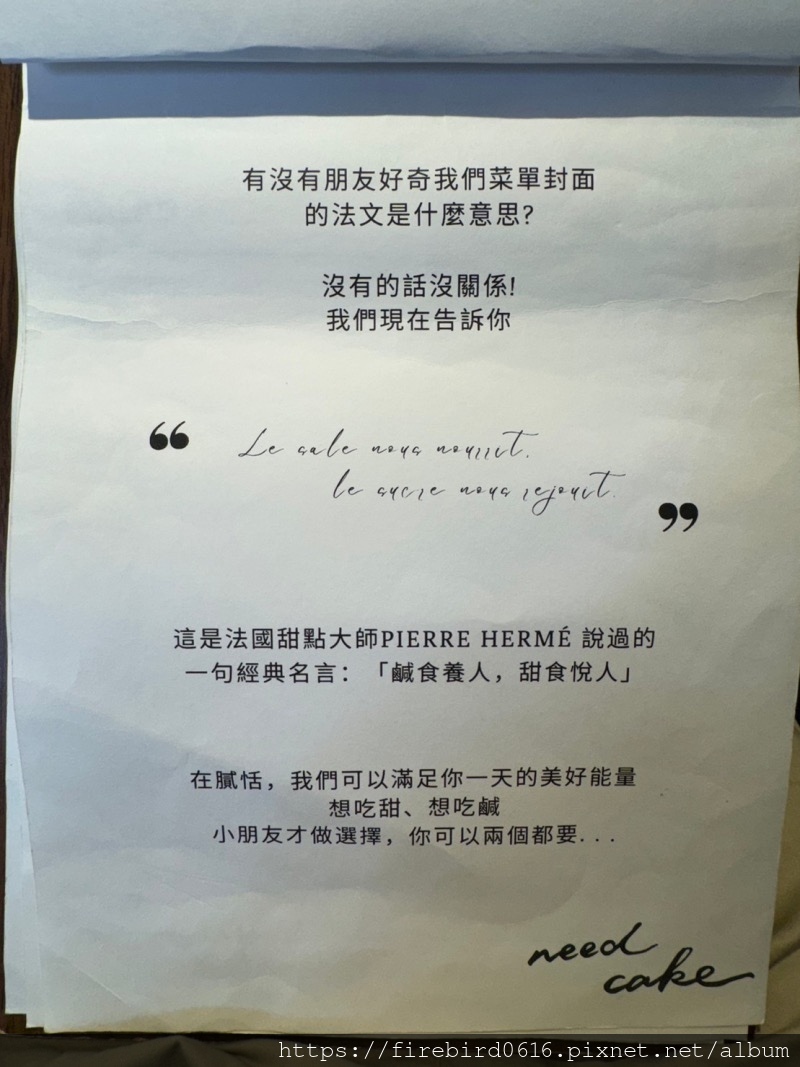 有沒有朋友好奇我們菜單封面
的法文是什麼意思?
沒有的話沒關係!
我們現在告訴你
“ Le sale nous nourrit,
le sucre nous rejouit. ”
這是法國甜點大師PIERRE HERMÉ 說過的
一句經典名言：「鹹食養人，甜食悅人」
在膩恬，我們可以滿足你一天的美好能量
想吃甜、想吃鹹
小朋友才做選擇，你可以兩個都要...
need
cake
https://firebird0616.pixnet.net/album